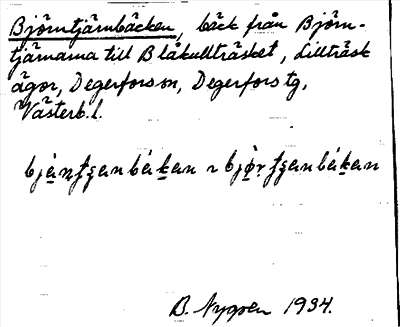 Björntjärnbäcken, bäck från Björn-
tjärnarna till Blåkullträsket, Lillträsk
ägor, Degerfors sn, Degerfors tg,
Västerb. l.
B. Nygren 1934.